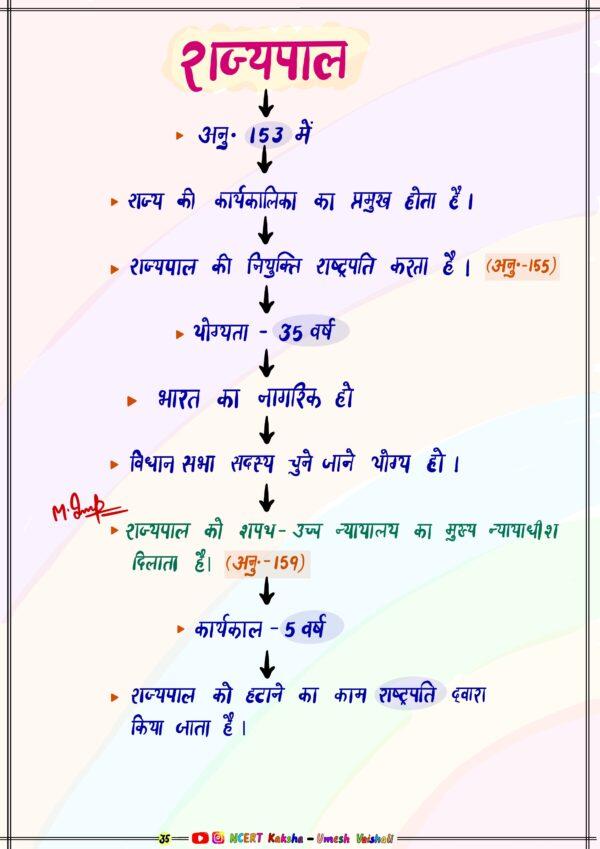 राज्यपाल
▸ अनु॰ 153 में
▸ राज्य की कार्यकालिका का प्रमुख होता है।
▸ राज्यपाल की नियुक्ति राष्ट्रपति करता है। (अनु॰-155)
▸ योग्यता - 35 वर्ष
▸ भारत का नागरिक हो
▸ विधान सभा सदस्य चुने जाने योग्य हो।
M.Imp
▸ राज्यपाल को शपथ - उच्च न्यायालय का मुख्य न्यायाधीश
दिलाता है। (अनु॰-159)
▸ कार्यकाल - 5 वर्ष
▸ राज्यपाल को हटाने का काम राष्ट्रपति दवारा
किया जाता है।
35 NCERT Kaksha - Umesh Vaishali